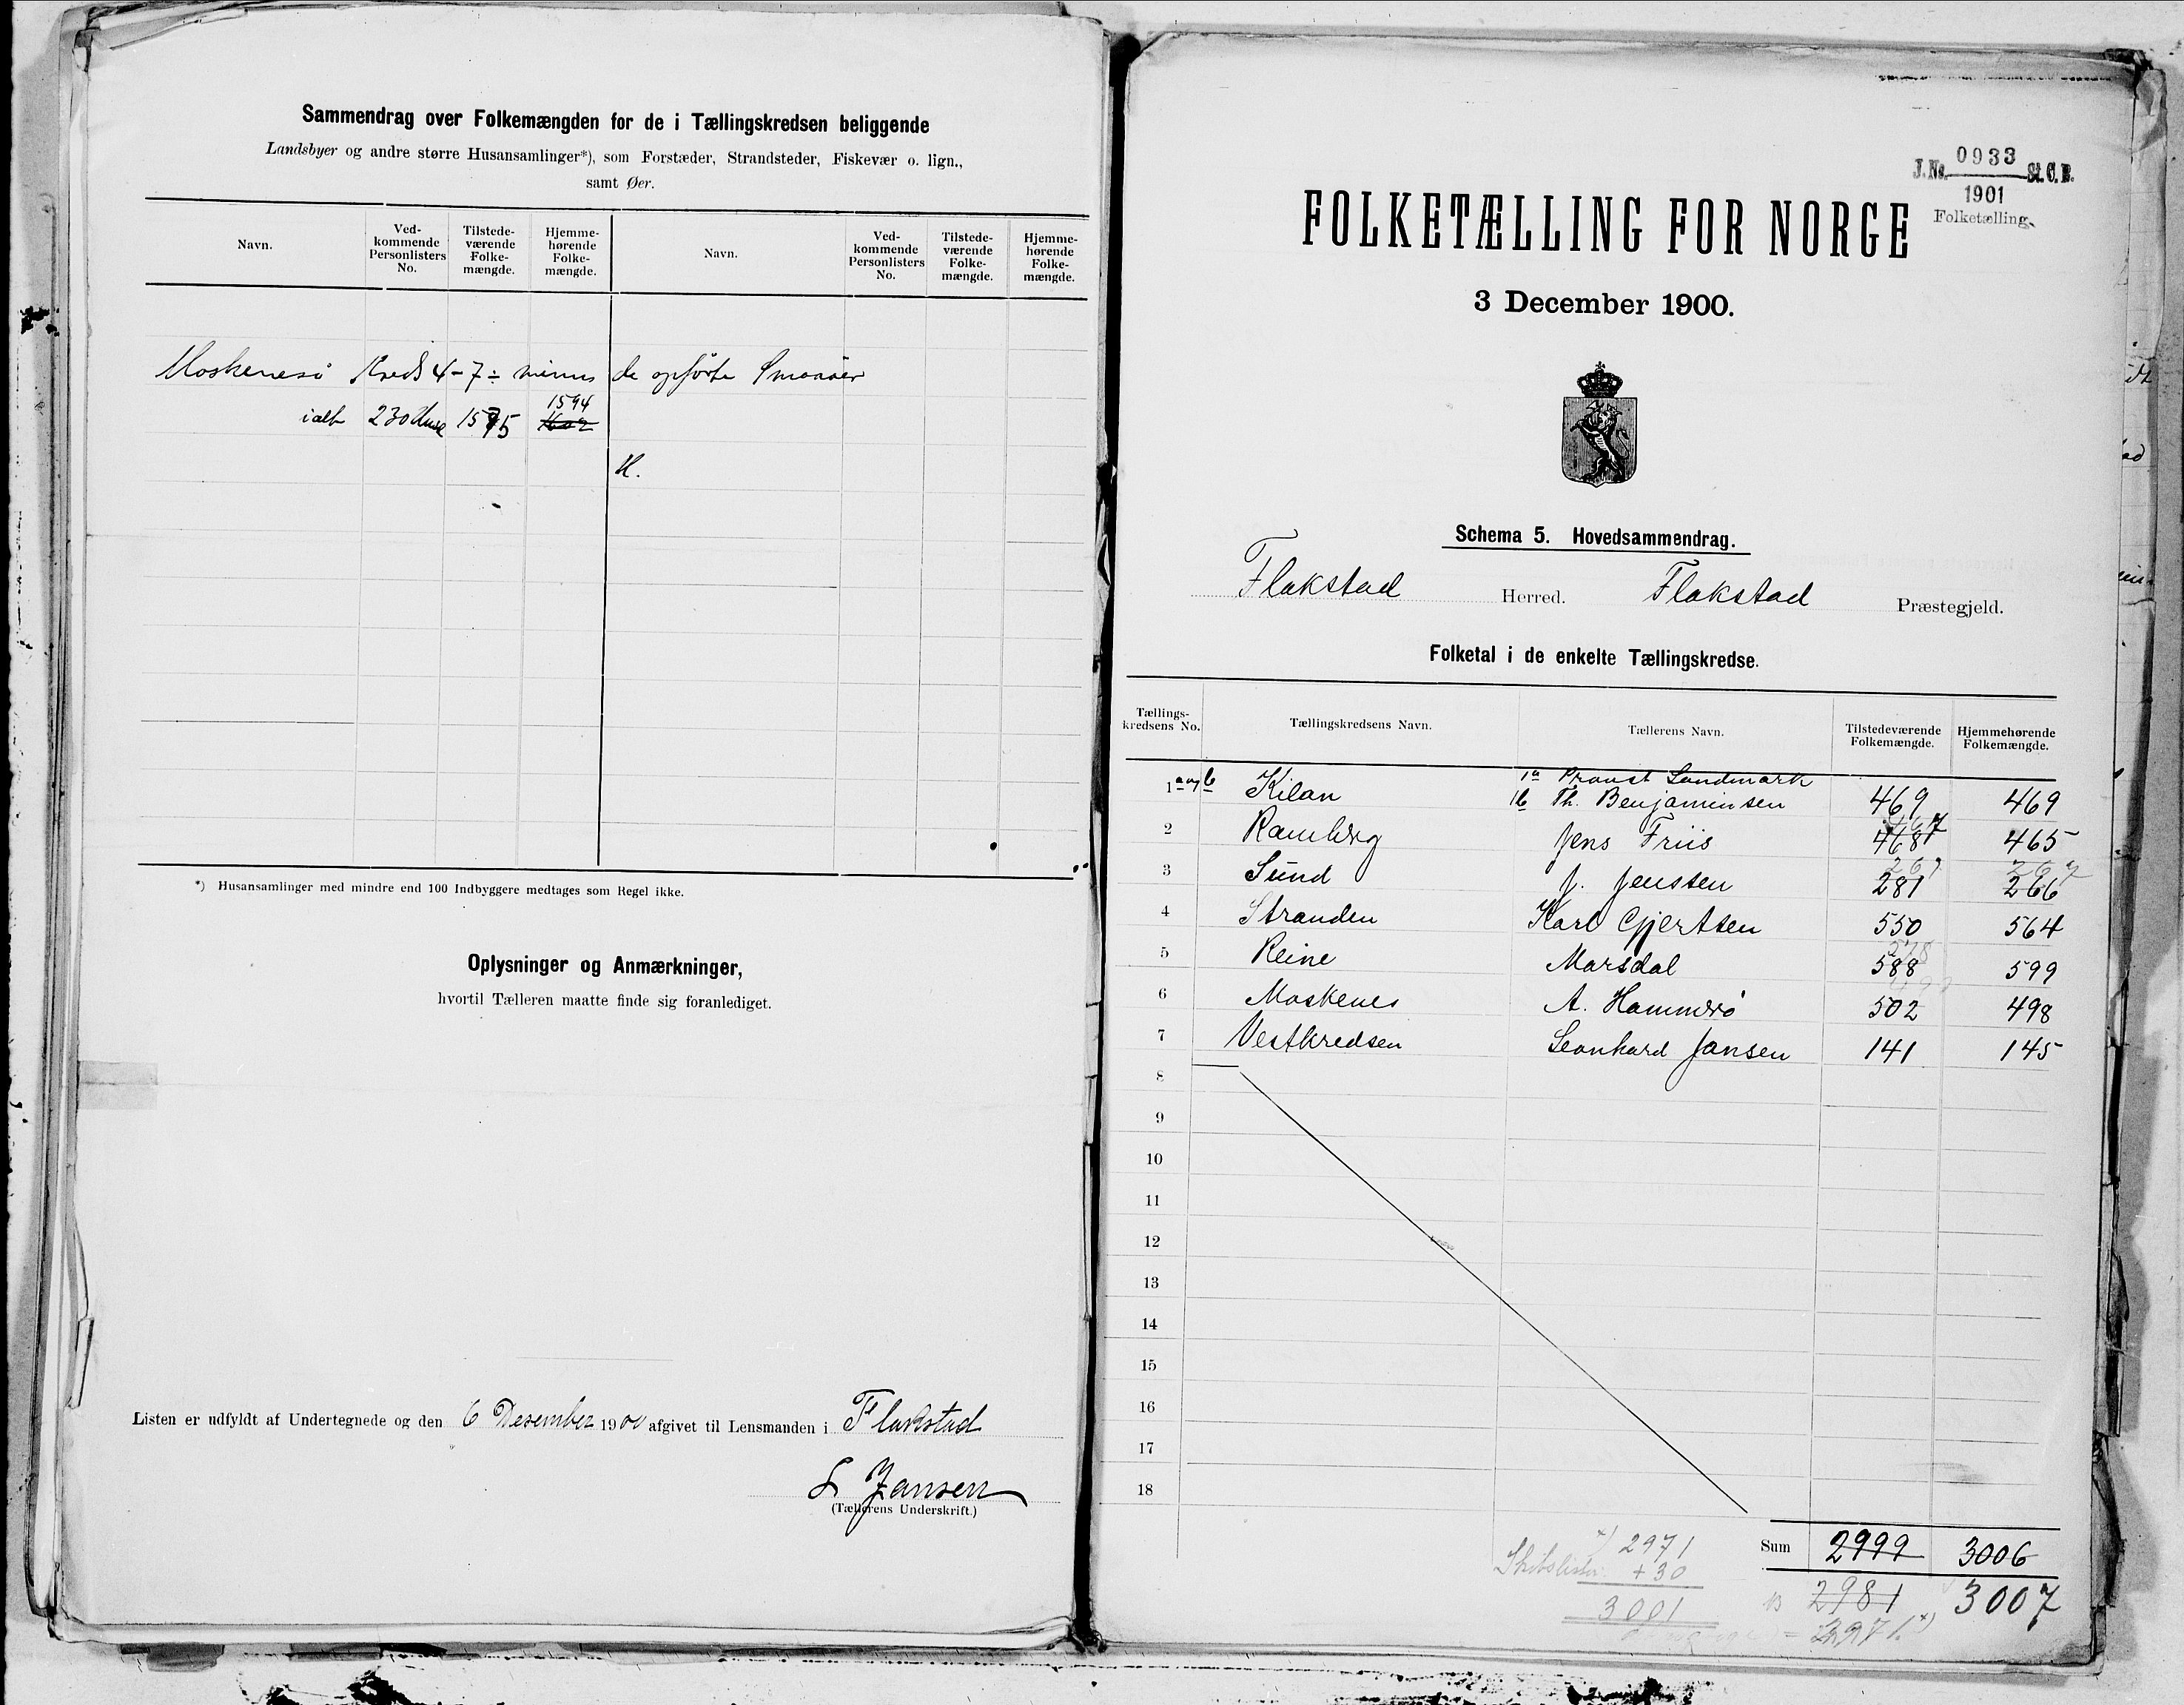 Sammendrag over Folkemængden for de i Tællingskredsen beliggende
Landsbyer og andre større Husansamlinger*), som Forstæder, Strandsteder, Fiskevær o. lign.,
samt Øer.
Navn. Ved-kommende Personlisters No. Tilstede-værende Folke-mængde. Hjemme-hørende Folke-mængde. Navn. Ved-kommende Personlisters No. Tilstede-værende Folke-mængde. Hjemme-hørende Folke-mængde.
Moskenesø Kreds 4-7 ÷ minus de opførte Smaaøer
1594
ialt 230 Huse 1575 1602
H.
*) Husansamlinger med mindre end 100 Indbyggere medtages som Regel ikke.
Oplysninger og Anmærkninger,
hvortil Tælleren maatte finde sig foranlediget.
Listen er udfyldt af Undertegnede og den 6 Desember 1900 afgivet til Lensmanden i Flakstad
L Jansen
(Tællerens Underskrift.)
J. No. 0933 St. C. B.
1901
Folketælling.
FOLKETÆLLING FOR NORGE
3 December 1900.
Schema 5. Hovedsammendrag.
Flakstad Herred. Flakstad Præstegjeld.
Folketal i de enkelte Tællingskredse.
Tællings-kredsens No. Tællingskredsens Navn. Tællerens Navn. Tilstedeværende Folkemængde. Hjemmehørende Folkemængde.
1a Provst Landmark
1 a og b Kilan 1b Th. Benjaminsen 469 469
2 Ramberg Jens Friis 468 7 465
267 267
3 Sund J. Jenssen 281 266
4 Stranden Karl Gjertsen 550 564
578
5 Reine Marsdal 588 599
6 Moskenes A. Hammerø 502 498
7 Vestkredsen Leonhard Jansen 141 145
8
9
10
11
12
13
14
15
16
17
18
Sum 2999 3006
x) 2971
Skibslister + 30
3001
2981 3007
2971 x)